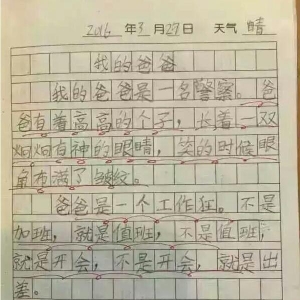 2016年3月29日 天气 晴
我的爸爸
我的爸爸是一名警察。爸
爸有着高高的个子，长着一双
炯炯有神的眼睛，笑的时候眼
角布满了皱纹。
爸爸是一个工作狂。不是
加班，就是值班，不是值班，
就是开会，不是开会，就是出
差。